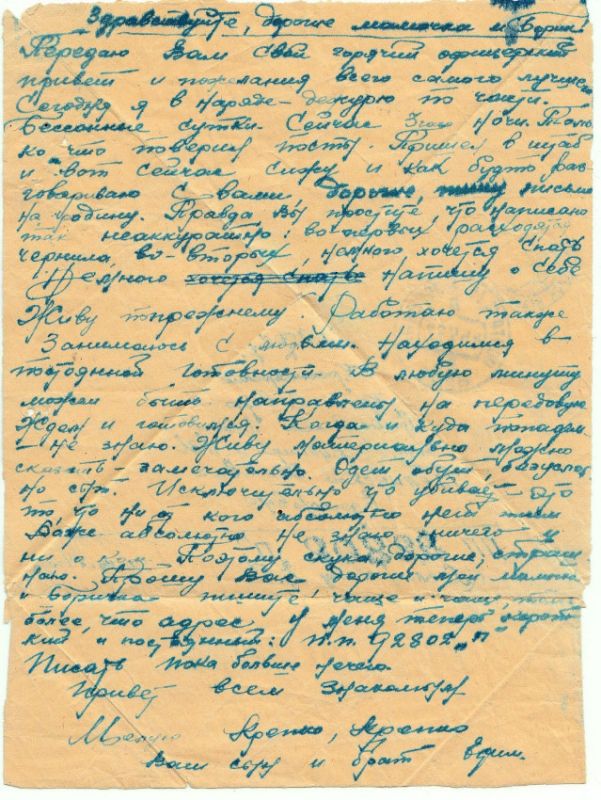 Здравствуйте, дорогие мамочка и Борик
Передаю Вам свой горячий офицерский
привет и пожелания всего самого лучшего
Сегодня я в наряде – дежурю по части.
Бессонные сутки. Сейчас 3 часа ночи. Толь
ко что поверил посты. Пришел в штаб
и вот сейчас сижу и как будто раз
говариваю с вами. Дорогие, пишу письмо
на родину. Правда вы простите, что написано
так неаккуратно: во-первых расходятся
чернила, во-вторых, немного хочется спать
Немного хочется спать напишу о себе
Живу по прежнему. Работаю также
Занимаюсь с людьми. Находимся в
постоянной готовности. В любую минуту
можем быть направлены на передовую
Ждем и готовимся. Когда и куда попадем
– не знаю. Живу материально можно
сказать – замечательно. Одет обут безуслов
но сыт. Исключительно что убивает – это
то что ни от кого абсолютно нет писем
абсолютно не знаю ничего и
ни о ком. Поэтому скука дорогие, страш
ная. Прошу Вас дорогие мои мамочка
и Боричка пишите чаще и чаще,
более, что адрес у меня теперь корот
кий и постоянный: п.п. 92802 „п"
Писать пока больше нечего
Привет всем знакомым
Целую Крепко, Крепко
Ваш сын и брат Вдим.